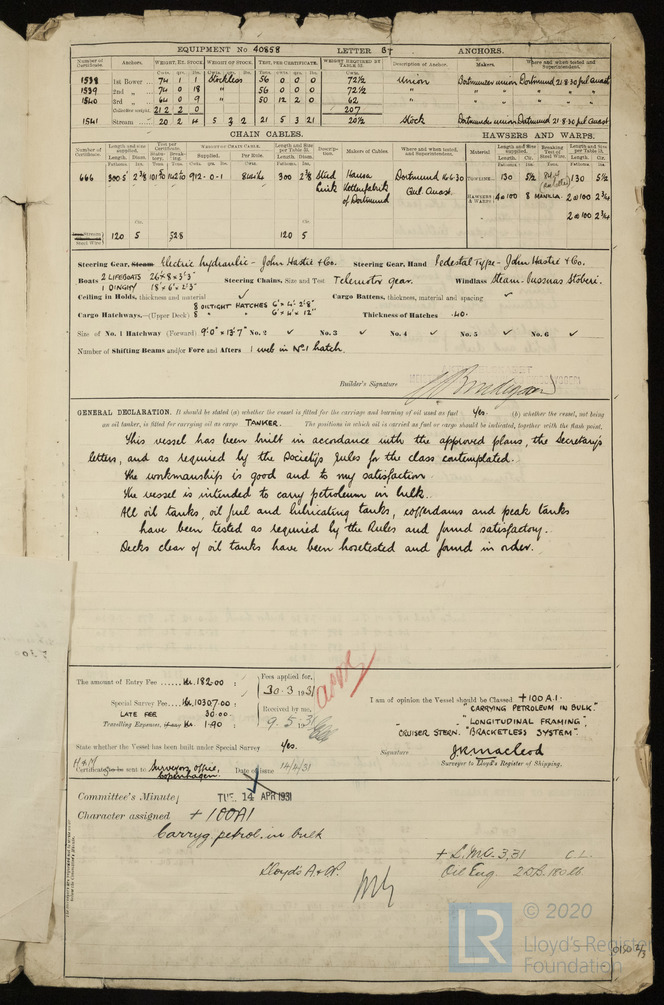 EQUIPMENT No 40858 LETTER B† ANCHORS.
Number of Certificate. Anchors. WEIGHT, EX. STOCK WEIGHT OF STOCK. TEST, PER CERTIFICATE. WEIGHT REQUIRED BY TABLE 31. Description of Anchor. Makers. Where and when tested and Superintendent.
Cwts. qrs. lbs. Cwts.
1538 1st Bower 74 1 1 Stockless 56 0 0 0 72½ Union Dortmunder union Dortmund 21 8 30 Gul Quast
1539 2nd " 74 0 18 " 56 0 0 0 72½ " " " "
1540 3rd " 64 0 9 " 50 12 2 0 62 " " " "
Collective weight 212 2 0 207
1541 Stream 20 2 4 5 3 2 21 5 3 21 20½ Stock Dortmunder union Dortmund 21 8 30 Gul Quast
CHAIN CABLES. HAWSERS AND WARPS.
Number of Certificate. Length and size supplied. Test per Certificate. WEIGHT OF CHAIN CABLE. Length and Size per Table 31. Description. Makers of Cables. Where and when tested, and Superintendent. Material Length and Size supplied. Breaking Test of Steel Wire. Length and Size per Table 31.
Supplied. Per Rule.
666 300 5 2 3/8 912-0-1 300 2 3/8 Stud Link Hansa Kettenfabrik of Dortmund Dortmund 16.6.30 Gul Quast.
TOWLINE 130 5½ 130 5½
HAWSERS & WARPS 4@100 8 MANILLA 2@100 2¾
2@100 2¾
Steel Wire 120 5 528 120 5
Steering Gear, Steam Electric hydraulic - John Hastie & Co. Steering Gear, Hand Pedestal Type - John Hastie & Co.
Boats 2 LIFEBOATS 26' × 8' × 3'3" Steering Chains, Size and Test Telemotor gear. Windlass Steam
1 DINGHY 18' × 6' × 2'3"
Ceiling in Holds, thickness and material ✓ Cargo Battens, thickness, material and spacing ✓
Cargo Hatchways.—(Upper Deck) 8 OILTIGHT HATCHES 6' × 4' 2'8" Thickness of Hatches .40.
8 " " 6' × 4' × 12"
Size of No. 1 Hatchway (Forward) 9'0" × 13'7" No. 2 ✓ No. 3 ✓ No. 4 ✓ No. 5 ✓ No. 6 ✓
Number of Shifting Beams and/or Fore and Afters 1 web in No 1 hatch.
Builder's Signature
GENERAL DECLARATION. It should be stated (a) whether the vessel is fitted for the carriage and burning of oil used as fuel Yes. (b) whether the vessel, not being
an oil tanker, is fitted for carrying oil as cargo TANKER. The positions in which oil is carried as fuel or cargo should be indicated, together with the flash point.
This vessel has been built in accordance with the approved plans, the Secretary's
letters, and as required by the Society's rules for the class contemplated.
The workmanship is good and to my satisfaction
The vessel is intended to carry petroleum in bulk.
All oil tanks, oil fuel and lubricating tanks, cofferdams and peak tanks
have been tested as required by the Rules and found satisfactory.
Decks clear of oil tanks have been hosetested and found in order.
The amount of Entry Fee Kr. 182.00 : Fees applied for,
30.3.1931
Special Survey Fee Kr. 10307.00 : Received by me,
LATE FEE 30.00
Travelling Expenses, if any Kr. 1.90 : 9.5.1931
I am of opinion the Vessel should be Classed +100 A.1.
"CARRYING PETROLEUM IN BULK"
"LONGITUDINAL FRAMING"
CRUISER STERN. "BRACKETLESS SYSTEM".
State whether the Vessel has been built under Special Survey Yes.
Signature J.R. Macleod
Surveyor to Lloyd's Register of Shipping.
H & M
Certificate to be sent to Surveyors Office, Copenhagen. Date of issue 14/4/31
Committee's Minute TUE. 14 APR 1931
Character assigned + 100A1
Carryg petrol. in bulk
Lloyd's A & C.P.
+ L.M.C. 3,31 C.L.
Oil Eng. 2 D.B. 180 lb
© 2020
LR Lloyd's Register
Foundation
0150 2/3